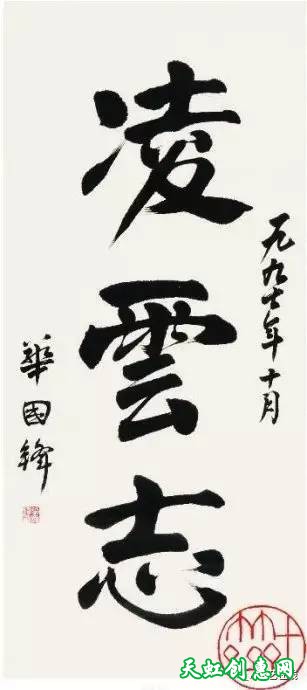 凌雲志
一九九七年十月
華國鋒
天虹创意网